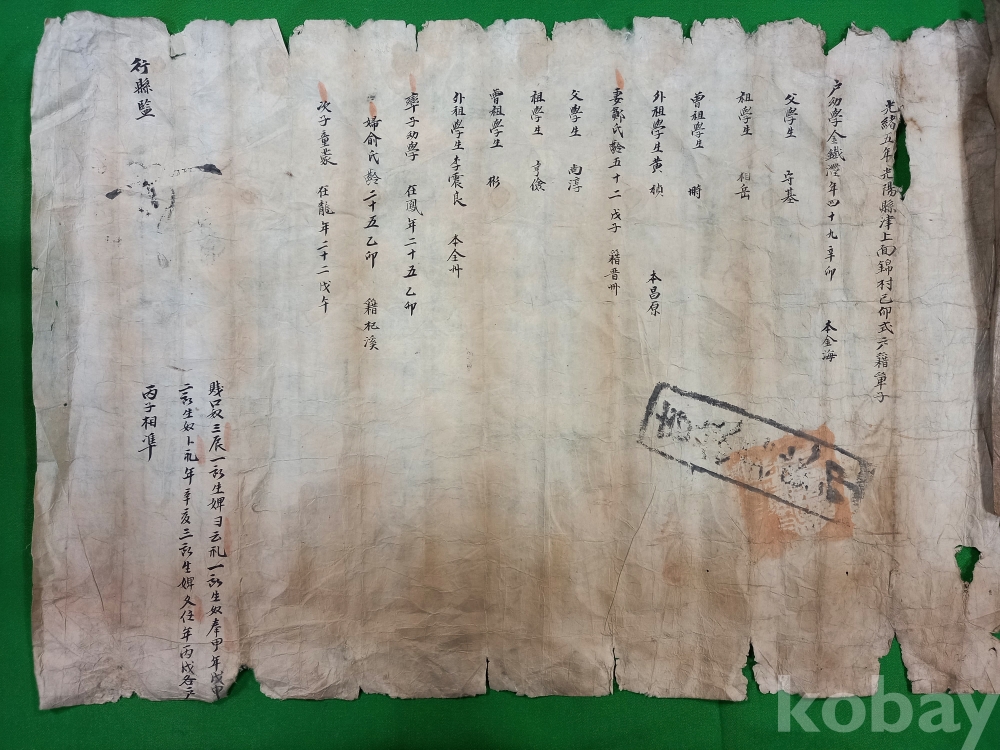 光緖五年光陽縣津上面錦村己卯式戶籍單子
戶幼學金鐵灃年四十九辛卯 本金海
父學生 守基
祖學生 相岳
曾祖學生
外祖學生黃楨 本昌原
妻鄭氏齡五十二戊子 籍晋州
父學生 尙淳
祖學生 亨儉
曾祖學生 彬
外祖學生李震良 本全州
率子幼學 在鳳年二十五乙卯
婦兪氏齡二十五乙卯 籍杞溪
次子童蒙 在龍年二十二戊午
賤口奴三辰一所生婢 云礼一所生奴奉甲年戊申
二所生奴卜礼年辛亥三所生婢 年丙戌各戶
丙子相準
行縣監
kobay